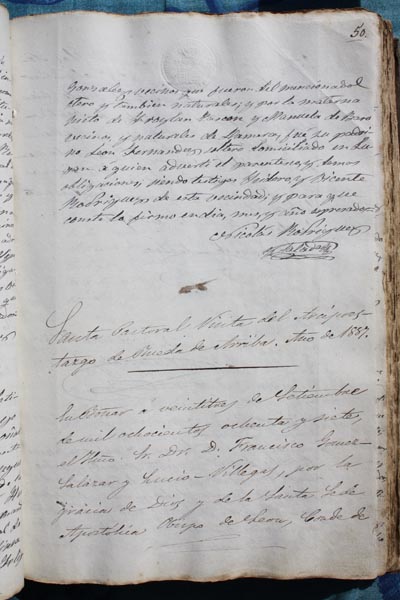 50.
Gonzalez vecinos que fueron del mencionado
otero y tambien naturales; y por la materna
nieto de Froylan Pascon y Manuela de Baro
vecinos y naturales de Llamera, fué su padri-
no Leon Fernandez, soltero domiciliado en
a quien advertí el parentesco, y demas
obligaciones, siendo testigos Ysidoro, y Vicente
Rodriguez de esta vecindad; y para que
conste lo firmo en dia, mes, y año expresados
Nicolás Rodriguez
Santa Pastoral Visita del Arcipres-
tazgo de Rueda de Arriba. Año de 1887.
En Bonar á veintitres de Setiembre
de mil ochocientos ochenta y siete,
el Ylmo. Sr. Dr. D. Francisco Gomez-
Salazar y Lucio-Villegas, por la
gracia de Dios y de la Santa Sede
Apostólica Obispo de Leon, Conde de